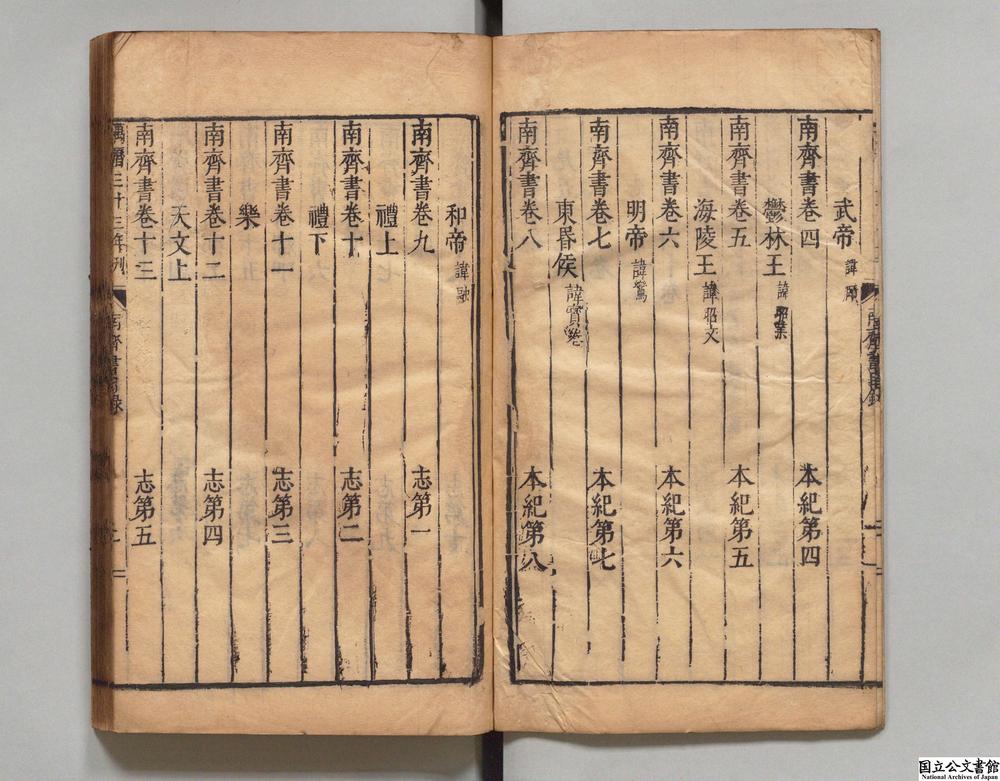 武帝 諱賾
南齊書卷四 本紀第四
鬱林王 諱昭業
南齊書卷五 本紀第五
海陵王 諱昭文
南齊書卷六 本紀第六
明帝 諱鸞
南齊書卷七 本紀第七
東昬侯 諱寳卷
南齊書卷八 本紀第八
和帝 諱
南齊書卷九 志第一
禮上
南齊書卷十 志第二
禮下
南齊書卷十一 志第三
樂
南齊書卷十二 志第四
天文上
南齊書卷十三 志第五
萬曆三十三年刊 南齊書目録
国立公文書館
National Archives of Japan